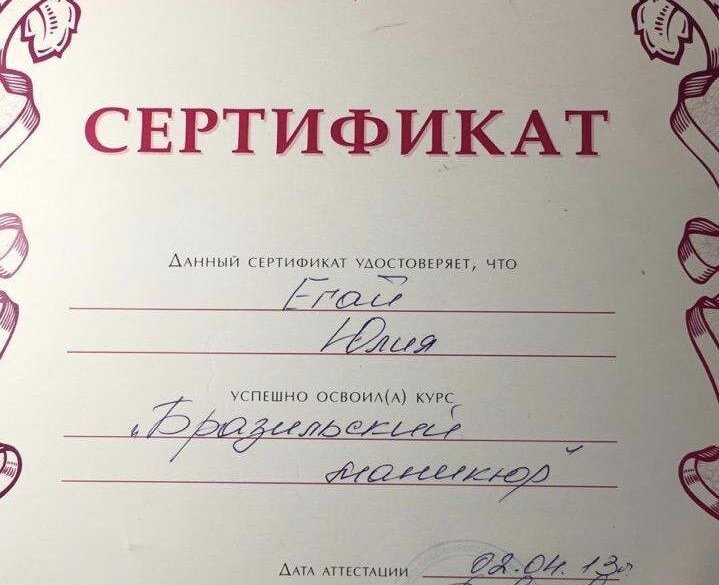 СЕРТИФИКАТ
Данный сертификат удостоверяет, что
Егай
Юлия
успешно освоил(а) курс
„Бразильский
маникюр"
Дата аттестации 02.04.13г